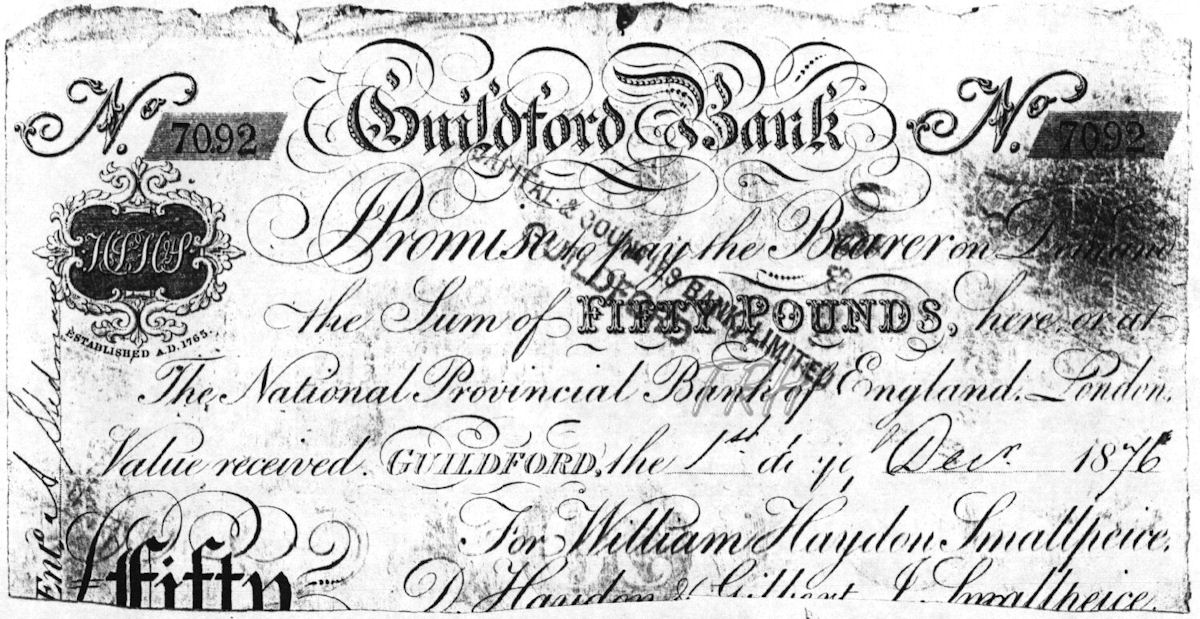 No. 7092 Guildford Bank No. 7092
I Promise to pay the Bearer on Demand
ESTABLISHED A.D. 1765.
the Sum of FIFTY POUNDS, here or at
The National Provincial Bank of England. London.
Value received. GUILDFORD, the 1st day of Decr. 1876
For William Haydon Smallpeice.
Fifty
D. Haydon & Gilbert J. Smallpeice.
CAPITAL & COUNTIES BANK LIMITED
GUILDFORD
Entd.